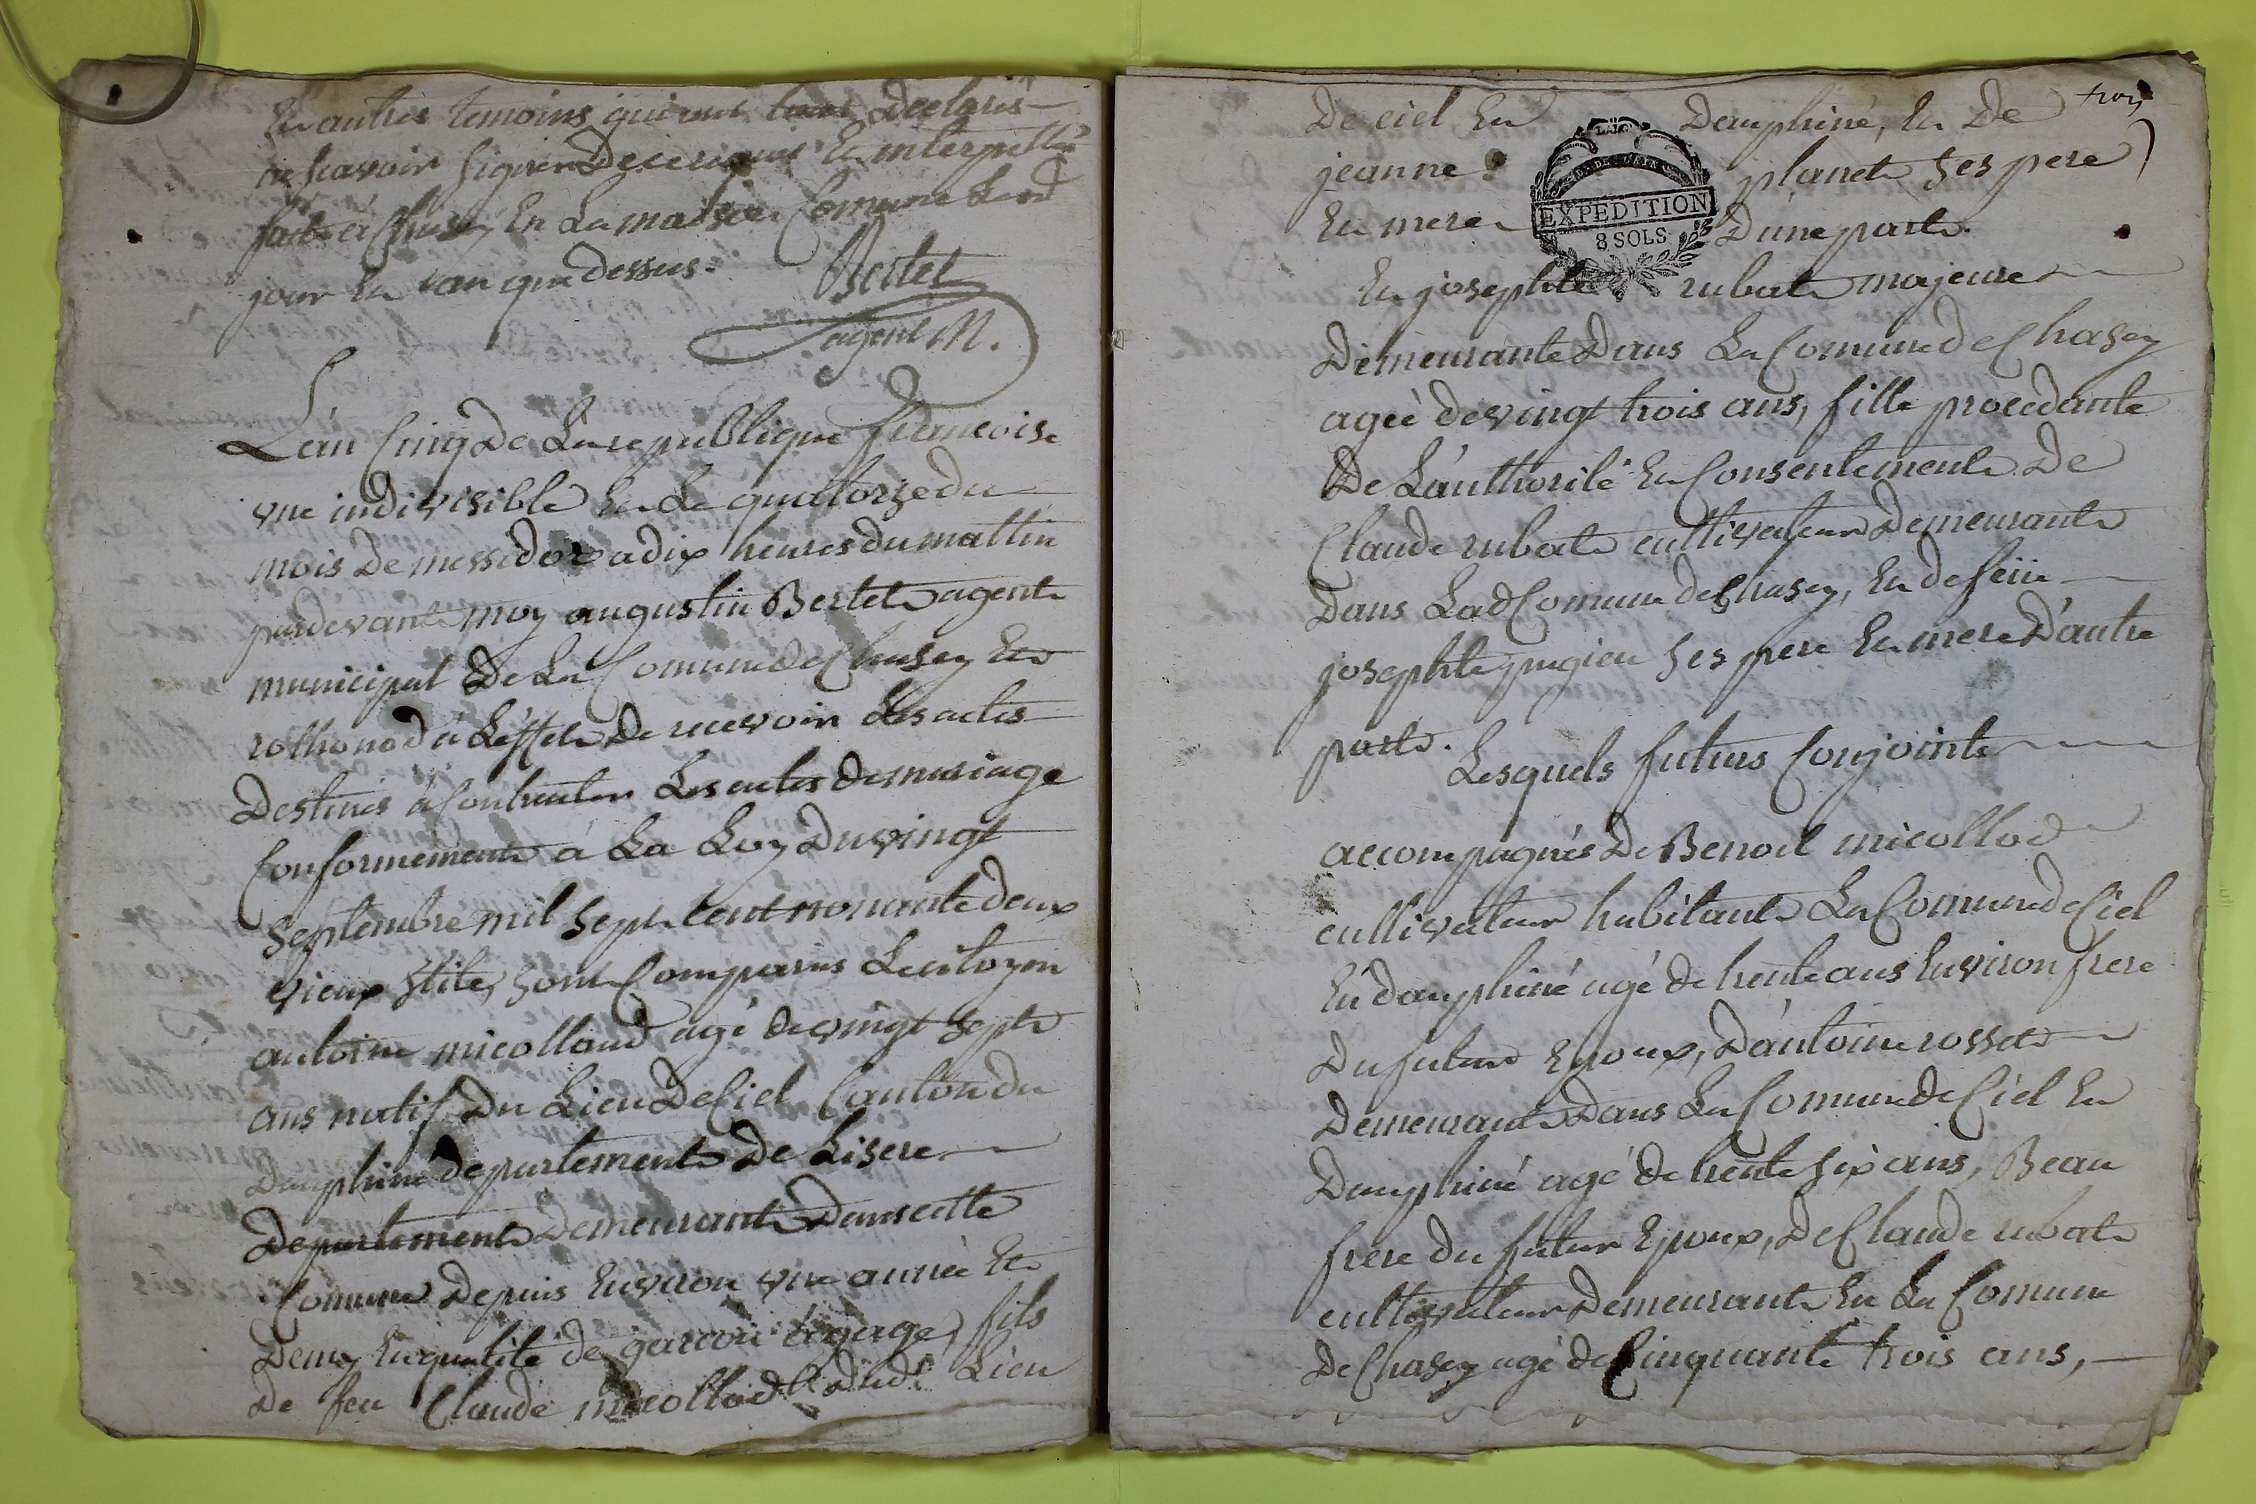 Et autres temoins qui ont tous declarés
ne scavoir signer De ce requis Et interpellés
fait à Chasey En La maison Comune Lesd
jour Et an que dessus. Bertet
agent M.
L'an Cinq De La republique francoise
une indivisible Et Le quatorze du
mois De messidor a dix heures du mattin
pardevant moy augustin Bertet agent
municipal De La Comune de Chasey Et
rothonod à L'effet De recevoir Les actes
Destinés à Contracter Les actes de mariage
Conformement à La Loy Du vingt
septembre mil sept cent nonante deux
vieux stile, sont Comparus Le citoyen
antoine micolloud agé de vingt sept
ans natif Du Lieu De Ciel Canton du
Dauphiné departement De Lisere
Departement demeurant Dans cette
Comune Depuis Environ une année Et
Demy En qualité de garcon à gage, fils
De feu Claude micollod dud. Lieu
trois
De ciel En Dauphiné, Et De
jeanne planet ses pere
Et mere D'une part.
EXPEDITION
8 SOLS
Et josephte rubat majeure
Demeurante Dans La Comune de Chasey
ageé de vingt trois ans, fille procedante
De L'authorité Et Consentement De
Claude rubat cultivateur Demeurant
Dans Lad Comune de Chasey, Et de feüe
josephte pugieu ses pere Et mere D'autre
part. Lesquels futurs Conjoints
accompagnés De Benoit micollod
cultivateur habitant La Comune de Ciel
En dauphiné agé de trente ans Environ frere
Du futur Epoux, D'antoine rosset
Demeurant Dans La Comune de Ciel En
Dauphiné agé de trente six ans, Beau
frere du futur Epoux, de Claude rubat
cultivateur Demeurant En La Comune
De Chasey agé de Cinquante trois ans,